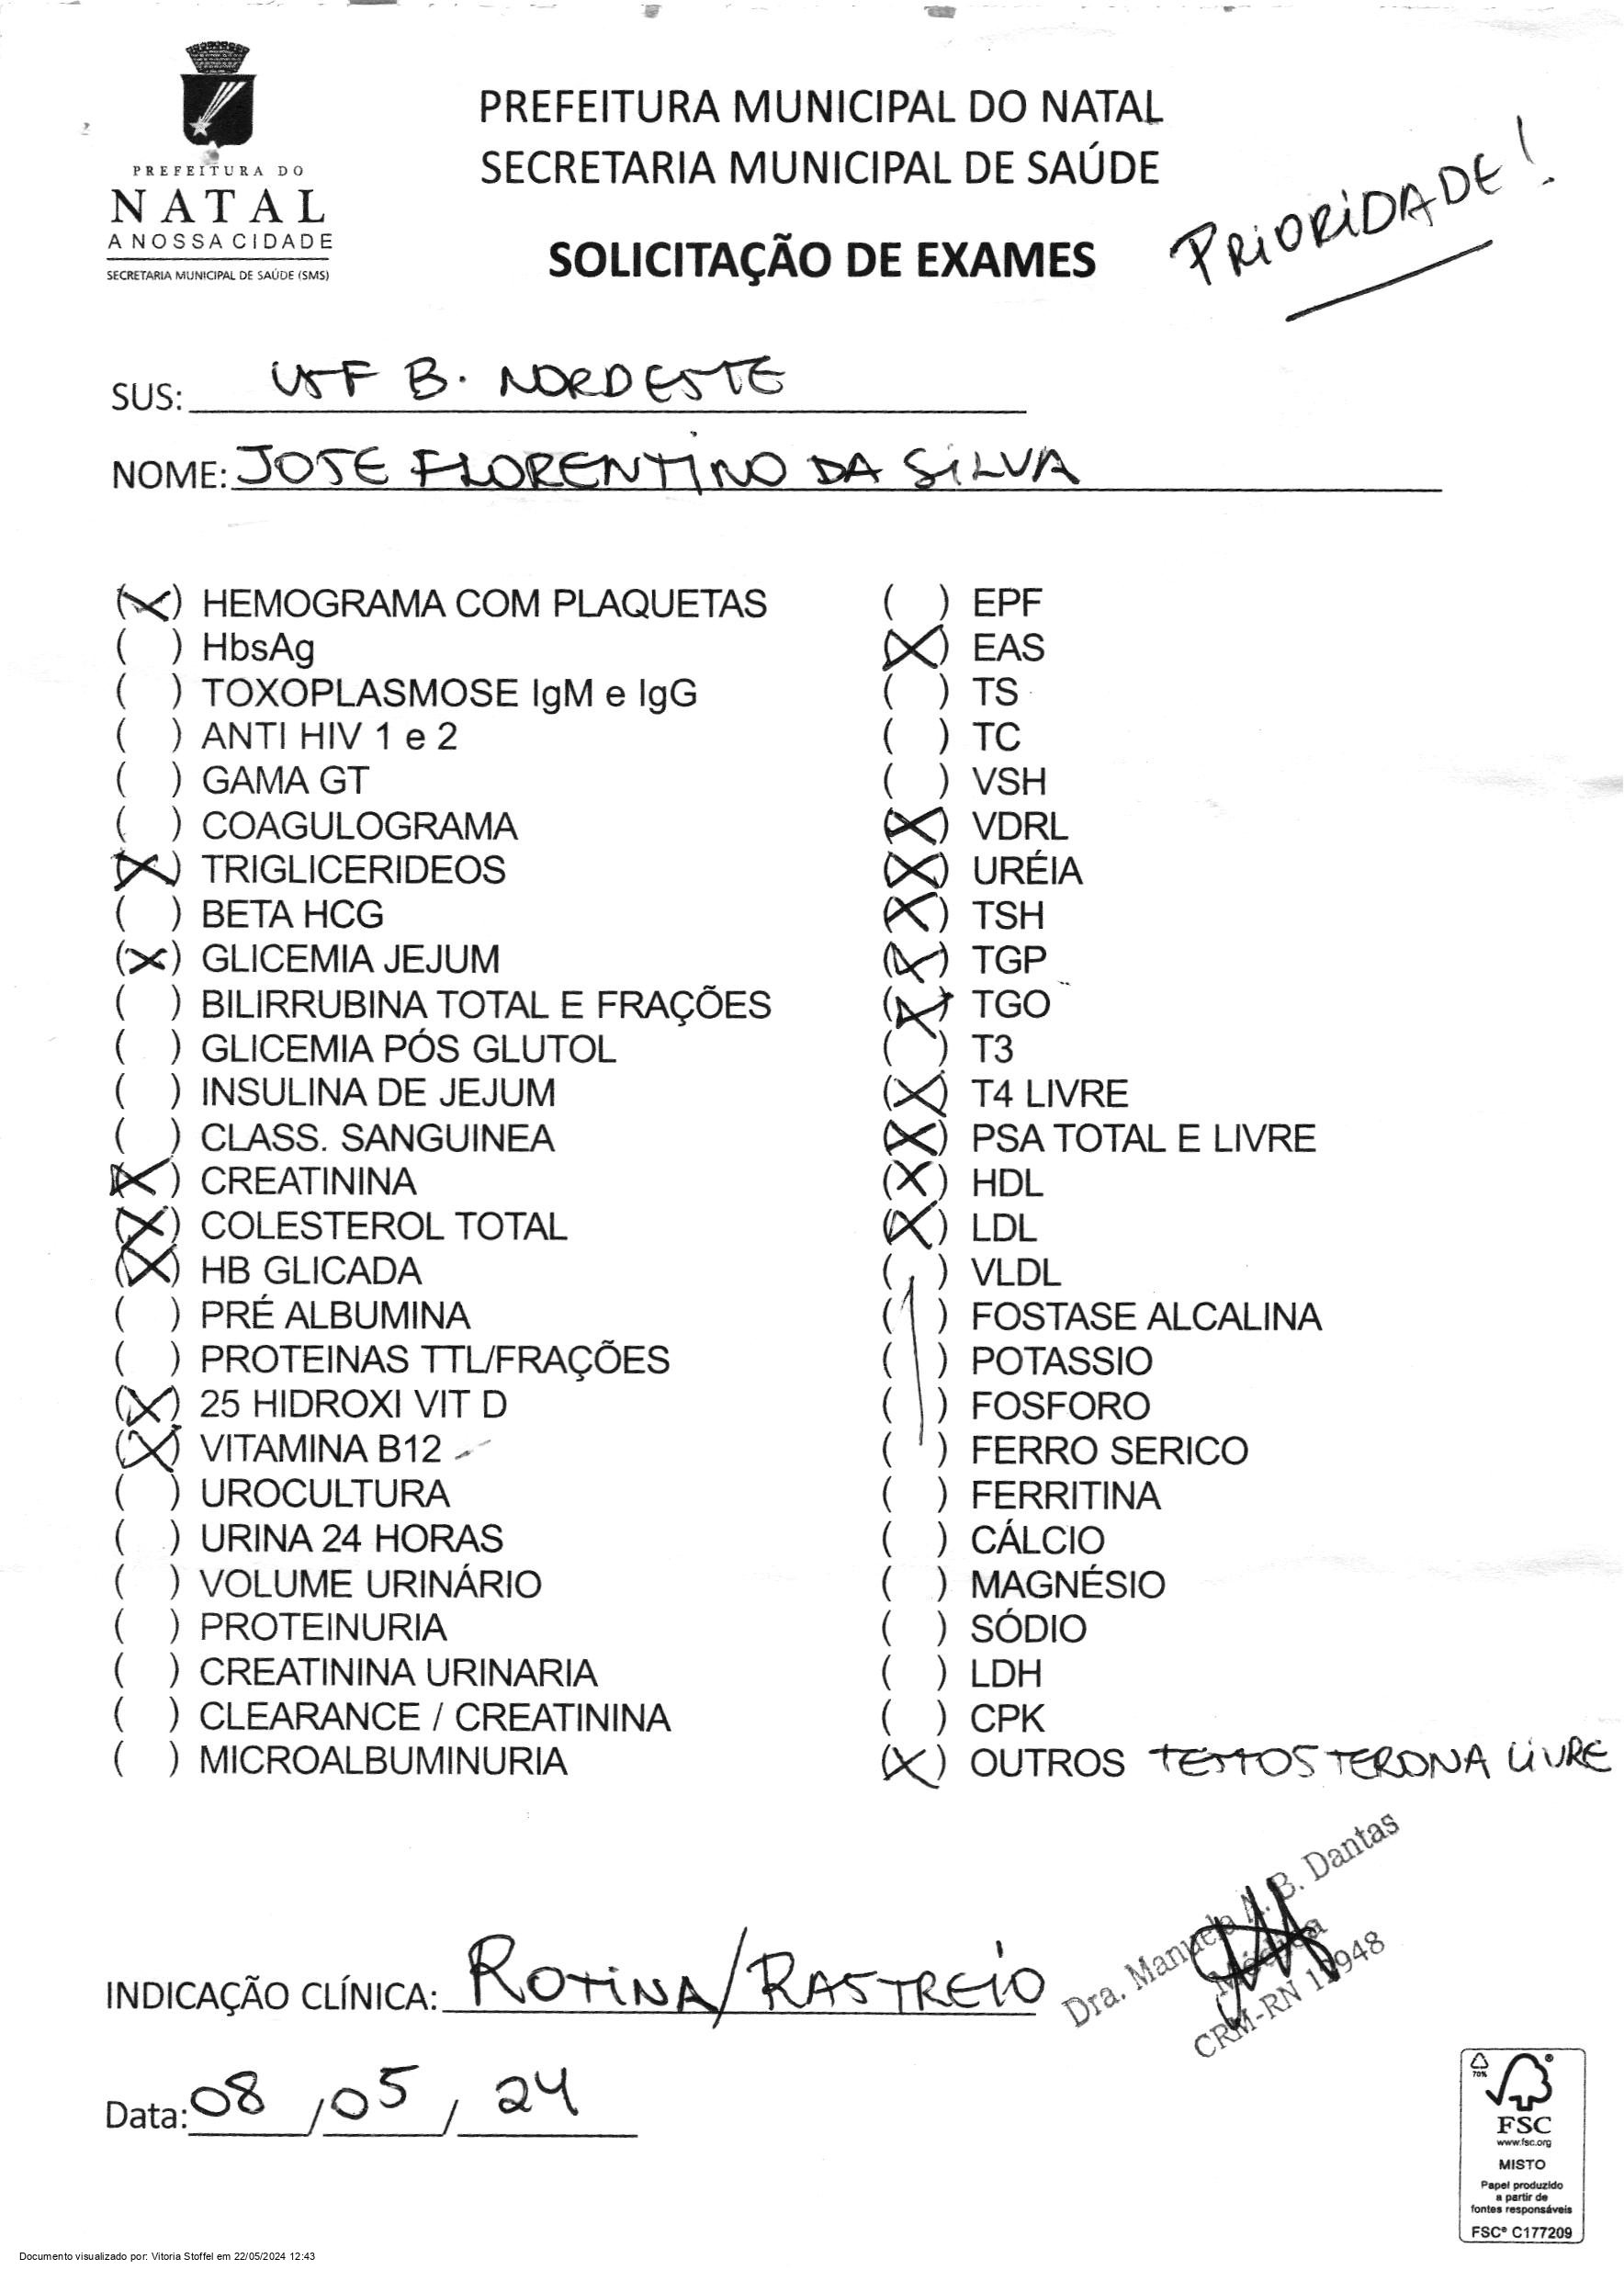 PREFEITURA DO
NATAL
A NOSSA CIDADE
SECRETARIA MUNICIPAL DE SAÚDE (SMS)
PREFEITURA MUNICIPAL DO NATAL
SECRETARIA MUNICIPAL DE SAÚDE
SOLICITAÇÃO DE EXAMES
PRIORIDADE!
SUS: USF B. NORDESTE
NOME: JOSE FLORENTINO DA SILVA
(X) HEMOGRAMA COM PLAQUETAS
( ) HbsAg
( ) TOXOPLASMOSE IgM e IgG
( ) ANTI HIV 1 e 2
( ) GAMA GT
( ) COAGULOGRAMA
(X) TRIGLICERIDEOS
( ) BETA HCG
(X) GLICEMIA JEJUM
( ) BILIRRUBINA TOTAL E FRAÇÕES
( ) GLICEMIA PÓS GLUTOL
( ) INSULINA DE JEJUM
( ) CLASS. SANGUINEA
(X) CREATININA
(X) COLESTEROL TOTAL
(X) HB GLICADA
( ) PRÉ ALBUMINA
( ) PROTEINAS TTL/FRAÇÕES
(X) 25 HIDROXI VIT D
(X) VITAMINA B12
( ) UROCULTURA
( ) URINA 24 HORAS
( ) VOLUME URINÁRIO
( ) PROTEINURIA
( ) CREATININA URINARIA
( ) CLEARANCE / CREATININA
( ) MICROALBUMINURIA
( ) EPF
(X) EAS
( ) TS
( ) TC
( ) VSH
(X) VDRL
(X) URÉIA
(X) TSH
(X) TGP
(X) TGO
( ) T3
(X) T4 LIVRE
(X) PSA TOTAL E LIVRE
(X) HDL
(X) LDL
( ) VLDL
( ) FOSTASE ALCALINA
( ) POTASSIO
( ) FOSFORO
( ) FERRO SERICO
( ) FERRITINA
( ) CÁLCIO
( ) MAGNÉSIO
( ) SÓDIO
( ) LDH
( ) CPK
(X) OUTROS TESTOSTERONA LIVRE
Dra. Manuela A. B. Dantas
Médica
CRM-RN
INDICAÇÃO CLÍNICA: ROTINA/RASTREIO
Data: 08/05/24
70%
FSC
www.fsc.org
MISTO
Papel produzido
a partir de
fontes responsáveis
FSC® C177209
Documento visualizado por: Vitoria Stoffel em 22/05/2024 12:43